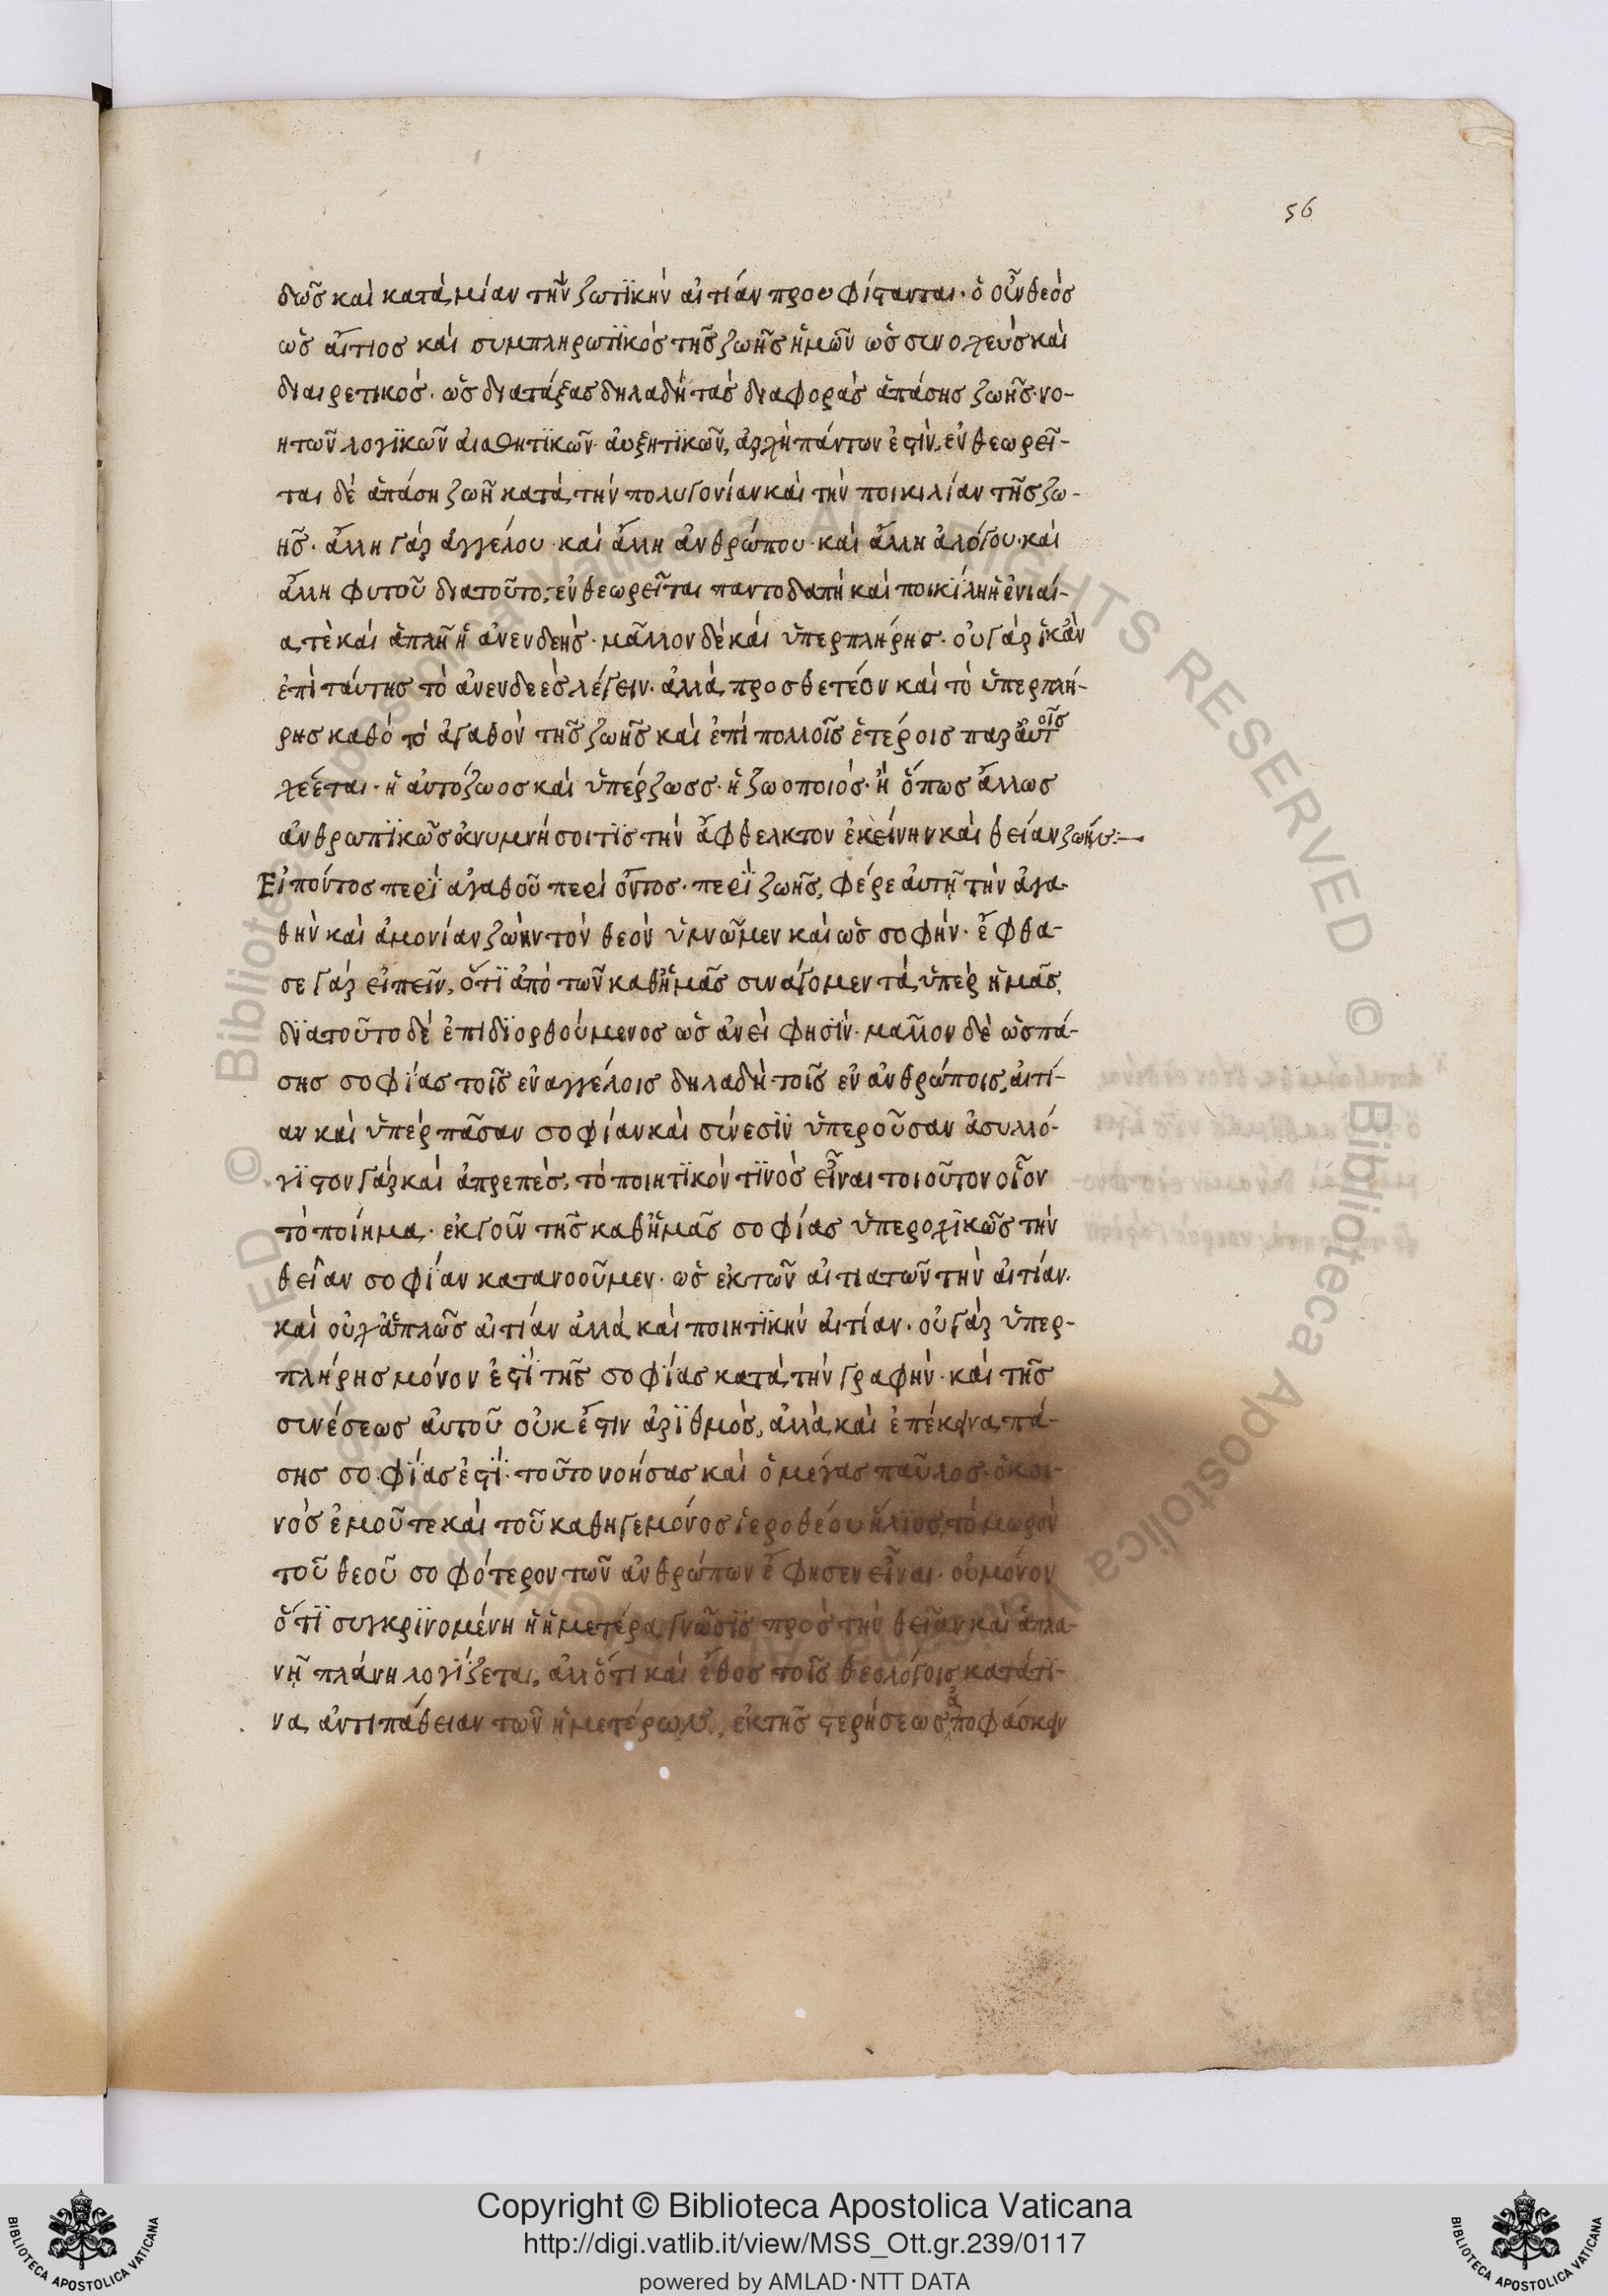 56
δῶς καὶ κατὰ μίαν τὴν ζωτϊκὴν αἰτιάν προυφίστανται· ὁ οὖν θεὸς
ὡς αἴτιος καὶ συμπληρωτϊκός τῆς ζωῆς ἡμῶν ὡς συνοχεὺς καὶ
διαιρετικός· ὡς διατάξας δηλαδὴ τὰς διαφορὰς ἁπάσης ζωῆς· νο-
ητῶν λογϊκῶν αἰσθητϊκῶν· αὐξητϊκῶν, ἀρχὴ πάντων ἐστὶν, ἐνθεωρεῖ-
ται δὲ ἁπάση ζωῆ κατὰ τὴν πολυγονίαν καὶ τὴν ποικιλίαν τῆς ζω-
ῆς· ἄλλη γὰρ ἀγγέλου· καὶ ἄλλη ἀνθρώπου· καὶ ἄλλη ἀλόγου· καὶ
ἄλλη φυτοῦ διατοῦτο, ἐνθεωρεῖται παντοδαπὴ καὶ ποικίλη ἡ ἑνιαί-
α, τὲ καὶ ἁπλῆ ἡ ἀνενδεής· μᾶλλον δὲ καὶ ὑπερπλήρης· οὐ γὰρ ἱκἀν
ἐπὶ ταύτης τὸ ἀνενδεὲς λέγειν· ἀλλὰ προσθετέον καὶ τὸ ὑπερπλή-
ρης καθό τὸ ἀγαθὸν τῆς ζωῆς καὶ ἐπὶ πολλοῖς ἑτέροις παρ αὐτοῖς
χέεται· ἡ αὐτόζωος καὶ ὑπέρζωος· ἡ ζωοποιός· ἢ ὅπως ἄλλως
ἀνθρωπϊκῶς ἀνυμνήσοι τϊς τὴν ἄφθεγκτον ἐκείνην καὶ θείαν ζωήν:—
Εἰπόντος περὶ ἀγαθοῦ περὶ ὄντος· περὶ ζωῆς, φέρε αὐτῇ τὴν ἀγα-
θὴν καὶ αἰωνίαν ζωὴν τὸν θεὸν ὑμνῶμεν καὶ ὡς σοφὴν· ἔφθα-
σε γὰρ εἰπεῖν, ὅτϊ ἀπὸ τῶν καθ ἡμᾶς συνάγομεν τὰ ὑπὲρ ἡμᾶς,
διατοῦτο δὲ ἐπιδϊορθούμενος ὡς ἀνεὶ φησὶν· μᾶλλον δὲ ὡς πά-
σης σοφίας τοῖς ἐν ἀγγέλοις δηλαδὴ· τοῖς ἐν ἀνθρώποις, αἰτί-
αν καὶ ὑπὲρ πᾶσαν σοφίαν καὶ σύνεσϊν ὑπεροῦσαν ἀσυλλό-
γϊστον γὰρ καὶ ἀπρεπὲς, τὸ ποιητϊκὸν τϊνὸς εἶναι τοιοῦτον οἷον
τὸ ποίημα· ἐκ γοῦν τῆς καθ ἡμᾶς σοφίας ὑπεροχϊκῶς τὴν
θείαν σοφΐαν κατανοοῦμεν· ὡς ἐκ τῶν αἰτιατῶν τὴν αἰτίαν.
καὶ οὐχ ἁπλῶς αἰτίαν ἀλλὰ καὶ ποιητϊκὴν αἰτίαν· οὐ γὰρ ὑπερ-
πλήρης μόνον ἐστϊ τῆς σοφίας κατὰ τὴν γραφὴν· καὶ τῆς
συνέσεως αὐτοῦ οὐκ ἔστιν ἀρϊθμὸς, ἀλλὰ καὶ ἐπέκεινα πά-
σης σοφΐας ἐστϊ· τοῦτο νοήσας καὶ ὁ μέγας παῦλος· ὁ κοι-
νὸς ἐμοῦ τε καὶ τοῦ καθηγεμόνος ἱεροθέου ἥλϊος, τὸ μωρὸν
τοῦ θεοῦ σοφότερον τῶν ἀνθρώπων ἔφησεν εἶναι· οὐ μόνον
ὅτϊ συγκρϊνομένη ἡ ἡμετέρα γνῶσϊς πρὸς τὴν θείαν καὶ ἀπλα-
νῆ πλάνη λογΐζεται, ἀλλ ὅτι καὶ ἔθος τοῖς θεολόγοις κατά τϊ-
να ἀντιπάθειαν τῶν ἡμετέρων, ἐκ τῆς στερήσεως ἀποφάσκειν
Copyright © Biblioteca Apostolica Vaticana
http://digi.vatlib.it/view/MSS_Ott.gr.239/0117
powered by AMLAD·NTT DATA